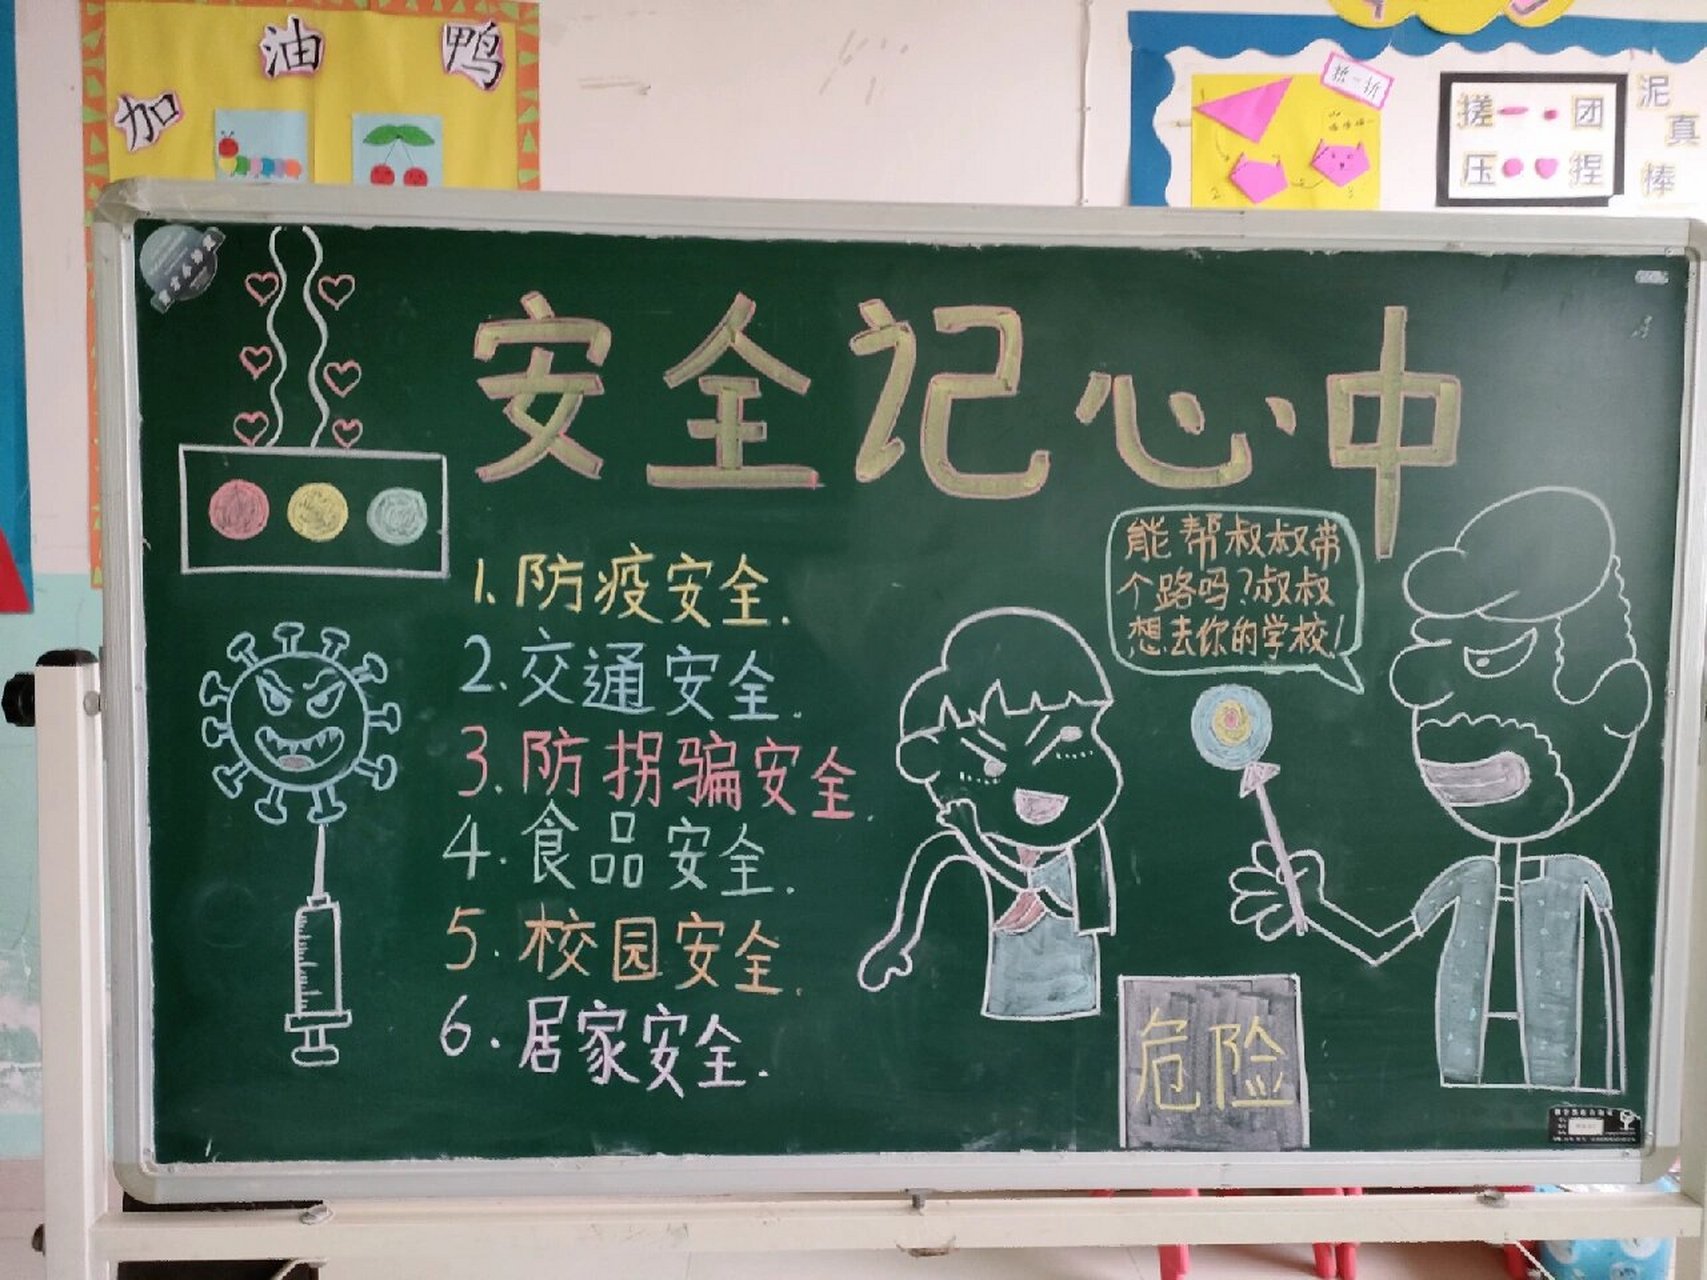 加油鸭
折一折
搓 团
压 捏
泥
真
棒
安全记心中
1.防疫安全.
2.交通安全.
3.防拐骗安全.
4.食品安全.
5.校园安全.
6.居家安全.
能帮叔叔带
个路吗?叔叔
想去你的学校!
危险